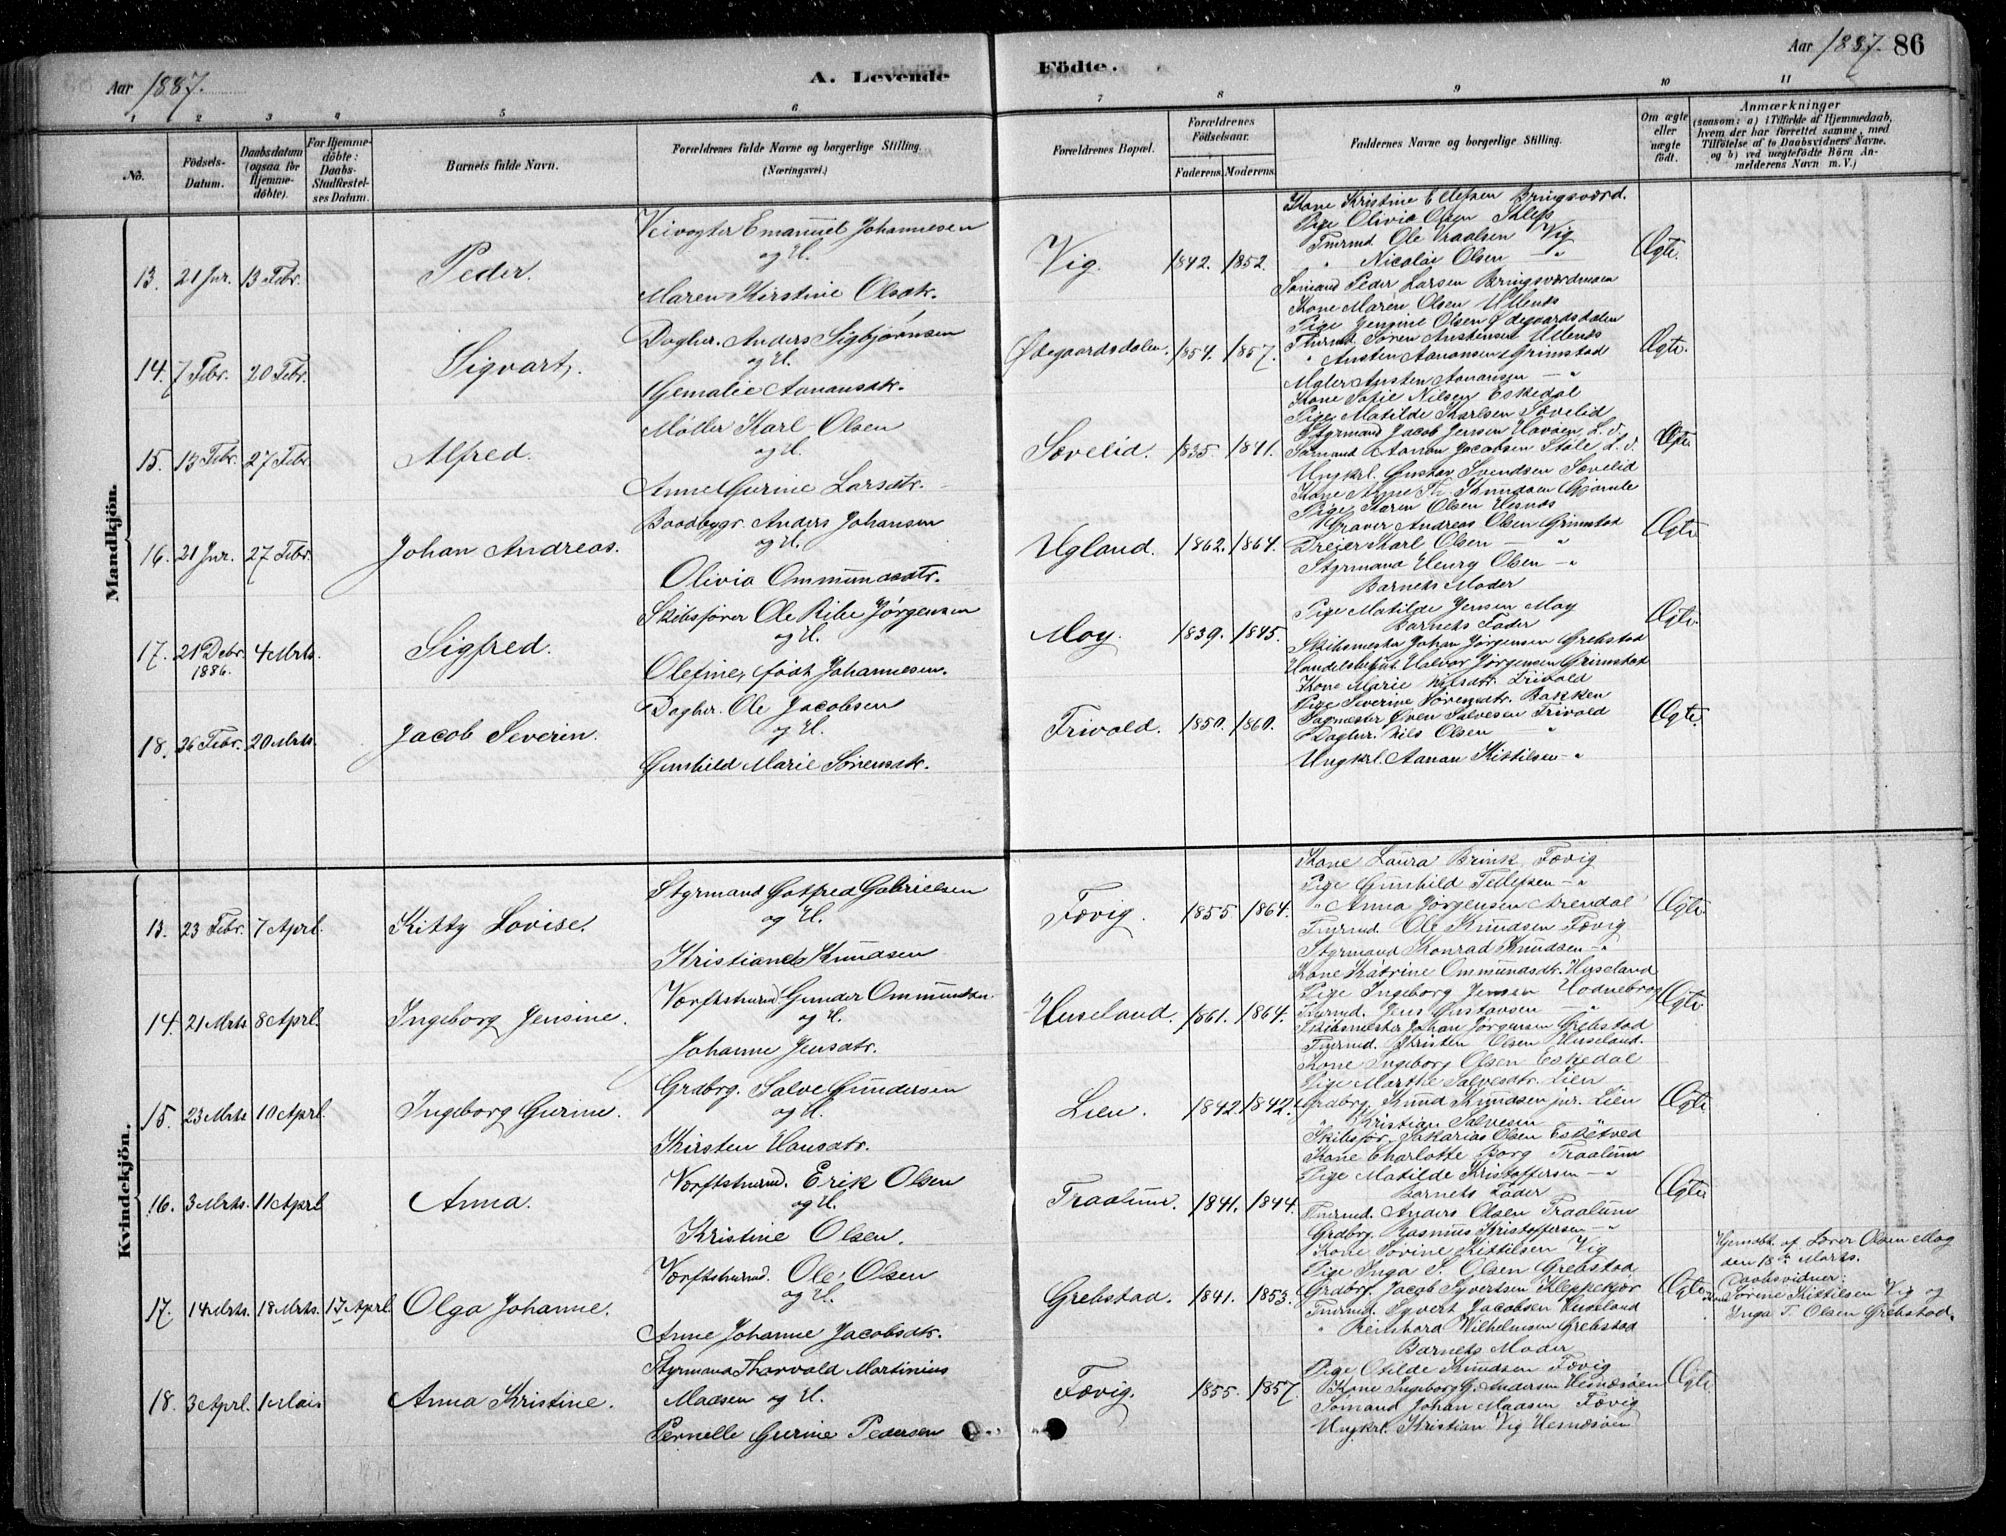 Aar 1887.
A. Levende
Födte.
Aar 1887. 86
1 2 3 4 5 6 7 8 9 10 11
No.
Födsels-Datum.
Daabsdatum (ogsaa for Hjemmedöbte).
For Hjemmedöbte: Daabs-Stadfæstelses Datum.
Barnets fulde Navn.
Forældrenes fulde Navne og borgerlige Stilling. (Næringsvei.)
Forældrenes Bopæl.
Forældrenes Födselsaar.
Faderens. Moderens.
Faddernes Navne og borgerlige Stilling.
Om ægte eller uægte födt.
Anmærkninger
(saasom: a) i Tilfælde af Hjemmedaab, hvem der har forrettet samme, med Tilföielse af to Daabsvidners Navne. og b) ved uægtefödte Börn Anmelderens Navn m. V.)
Mandkjön.
13. 21 Jnr. 13 Febr. Peder.
Veivogter Emanuel Johannesen
og H.
Maren Kirstine Olsdtr.
Vig. 1842. 1852.
Kone Kristine Ellefsen Bringsværd.
Pige Olivia Olsen Klep
Tmrmd. Ole Vraalsen Vig
" Nicolai Olsen "
Ægte.
14. 7 Febr. 20 Febr. Sigvart.
Dagbr. Anders Sigbjørnsen
og H.
Gemalie Aanansdtr.
Ødegaardsdalen. 1854. 1857.
Sømand Peder Larsen Bringsværdmoen
Kone Maren Olsen Ullenæs
Pige Jensine Olsen Ødegaardsdalen
Tmrmd. Søren Austensen Ullenæs
" Austen Aanonsen Grimstad
Ægte.
15. 13 Febr. 27 Febr. Alfred.
Møller Karl Olsen
og H.
Anne Gurine Larsdtr.
Sævelid. 1835. 1841.
Møller Austen Aanansen "
Kone Sofie Nilsen Eskedal
Pige Matilde Karlsen Sævelid
Styrmand Jacob Jensen
Sømand Aanon Jacobsen
Ungkrl. Gustav Svendsen Sævelid
Ægte
16. 21 Jnr. 27 Febr. Johan Andreas.
Baadbygr. Anders Johansen
og H.
Olivia Ommundsdtr.
Ugland. 1862. 1864.
Kone Anne Th. Knudsen Gjømle
Pige Karen Olsen Hesnæs
Graver Andreas Olsen Grimstad
Dreier Karl Olsen "
Styrmand Henry Olsen "
Ægte
17. 21 Debr. 1886. 4 Mrts. Sigfred.
Skibsfører Ole Ribe Jørgensen
og H.
Olefine, født Johannesen.
Moy. 1839. 1845.
Barnets Moder
Pige Matilde Jensen Moy
Barnets Fader
Skibsmester Johan Jørgensen Grebstad
Halvor Jørgensen Grimstad
Ægte
18. 26 Febr. 20 Mrts. Jacob Severin.
Dagbr. Ole Jacobsen
og H.
Gunhild Marie Sørensdtr.
Frivold. 1850. 1860.
Kone Marie Nilsdtr. Frivold
Pige Severine Sørensdtr. Bakken
Sagmester Even Salvesen Frivold
Dagbr. Nils Olsen "
Ungkrl. Aanan Kittilsen "
Ægte
Kvindekjön.
13. 23 Febr. 7 Aprl. Kitty Lovise.
Styrmand Gotfred Gabrielsen
og H.
Kristiane Knudsen
Fævig. 1855. 1864.
Kone Laura Brink Fævig
Pige Gunhild Tellefsen "
" Anna Jørgensen Arendal
Tmrmd. Ole Knudsen Fævig
Styrmand Konrad Knudsen "
Ægte
14. 21 Mrts. 8 Aprl. Ingeborg Jensine.
Værftstmrmd. Gunder Ommundsen
og H.
Johanne Jensdtr.
Huseland. 1861. 1864.
Kone Katrine Ommundsdtr. Huseland
Pige Ingeborg Jensen Hodnebrog
Tmrmd. Jens Gustavsen "
Skibsmester Johan Jørgensen Grebstad
Tmrmd. Kristen Olsen Huseland.
Ægte
15. 23 Mrts. 10 Aprl. Ingeborg Gurine.
Grdbrg. Salve Gundersen
og H.
Kirsten Hansdtr.
Lien. 1842. 1842.
Kone Ingeborg Olsen Eskedal
Pige Marthe Salvesdtr. Lien
Grdbrg. Knud Knudsen jnr. Lien
" Kristian Salvesen
Skibsfør. Sakarias Olsen Esketved
Ægte
16. 3 Mrts. 11 Aprl. Anna.
Værftstmrmd. Erik Olsen
og H.
Kristine Olsen.
Traalum. 1841. 1844.
Kone Charlotte Borg Traalum
Pige Matilde Kristoffersen "
Barnets Fader
Tmrmd. Anders Olsen Traalum
Grdbrg. Rasmus Kristoffersen "
Ægte
17. 14 Mrts. 18 Mrts. 17 Aprl. Olga Johanne.
Værftstmrmd. Ole Olsen
og H.
Anne Johanne Jacobsdtr.
Grebstad. 1841. 1853.
Kone Sørine Kittilsen Vig
Pige Inga T. Olsen Grebstad
Grdbrg. Jacob Syvertsen Kleppekjær
Tmrmd. Syvert Jacobsen Huseland
" Reinhard Vilhelmsen Grebstad
Ægte
Hjemdbt. af Lærer Olsen Moy
den 18de Marts.
Daabsvidner:
Kone Sørine Kittilsen Vig og
Inga T. Olsen Grebstad.
18. 3 Aprl. 1 Mais Anna Kristine.
Styrmand Thorvald Martinius
Madsen og H.
Pernille Gurine Pedersen
Fævig. 1855. 1857.
Barnets Moder
Pige Otilde Knudsen Fævig
Kone Ingeborg G. Andersen Hesnæsøen
Sømand Johan Madsen Fævig
Ungkrl. Kristian Vig Hesnæsøen
Ægte.